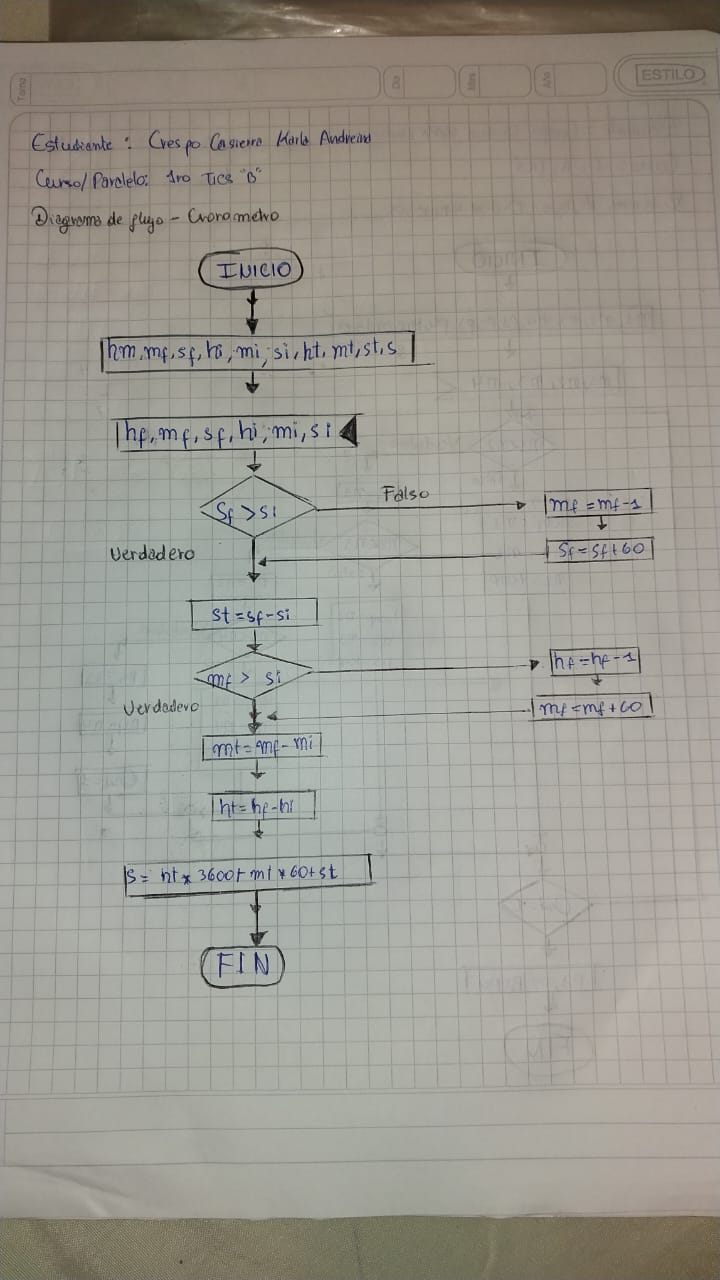 Tema
Día
Mes
Año
ESTILO
Estudiante: Crespo Casierra Karla Andreina
Curso/Paralelo: 1ro Tics "B"
Diagrama de flujo - Cronometro
INICIO
hm, mf, sf, hi, mi, si, ht, mt, st, s
hf, mf, sf, hi, mi, si
Sf > si
Falso
mf = mf - 1
Sf = sf + 60
Verdadero
st = sf - si
mf > si
hf = hf - 1
mf = mf + 60
Verdadero
mt = mf - mi
ht = hf - hi
S = ht * 3600 + mt * 60 + st
FIN